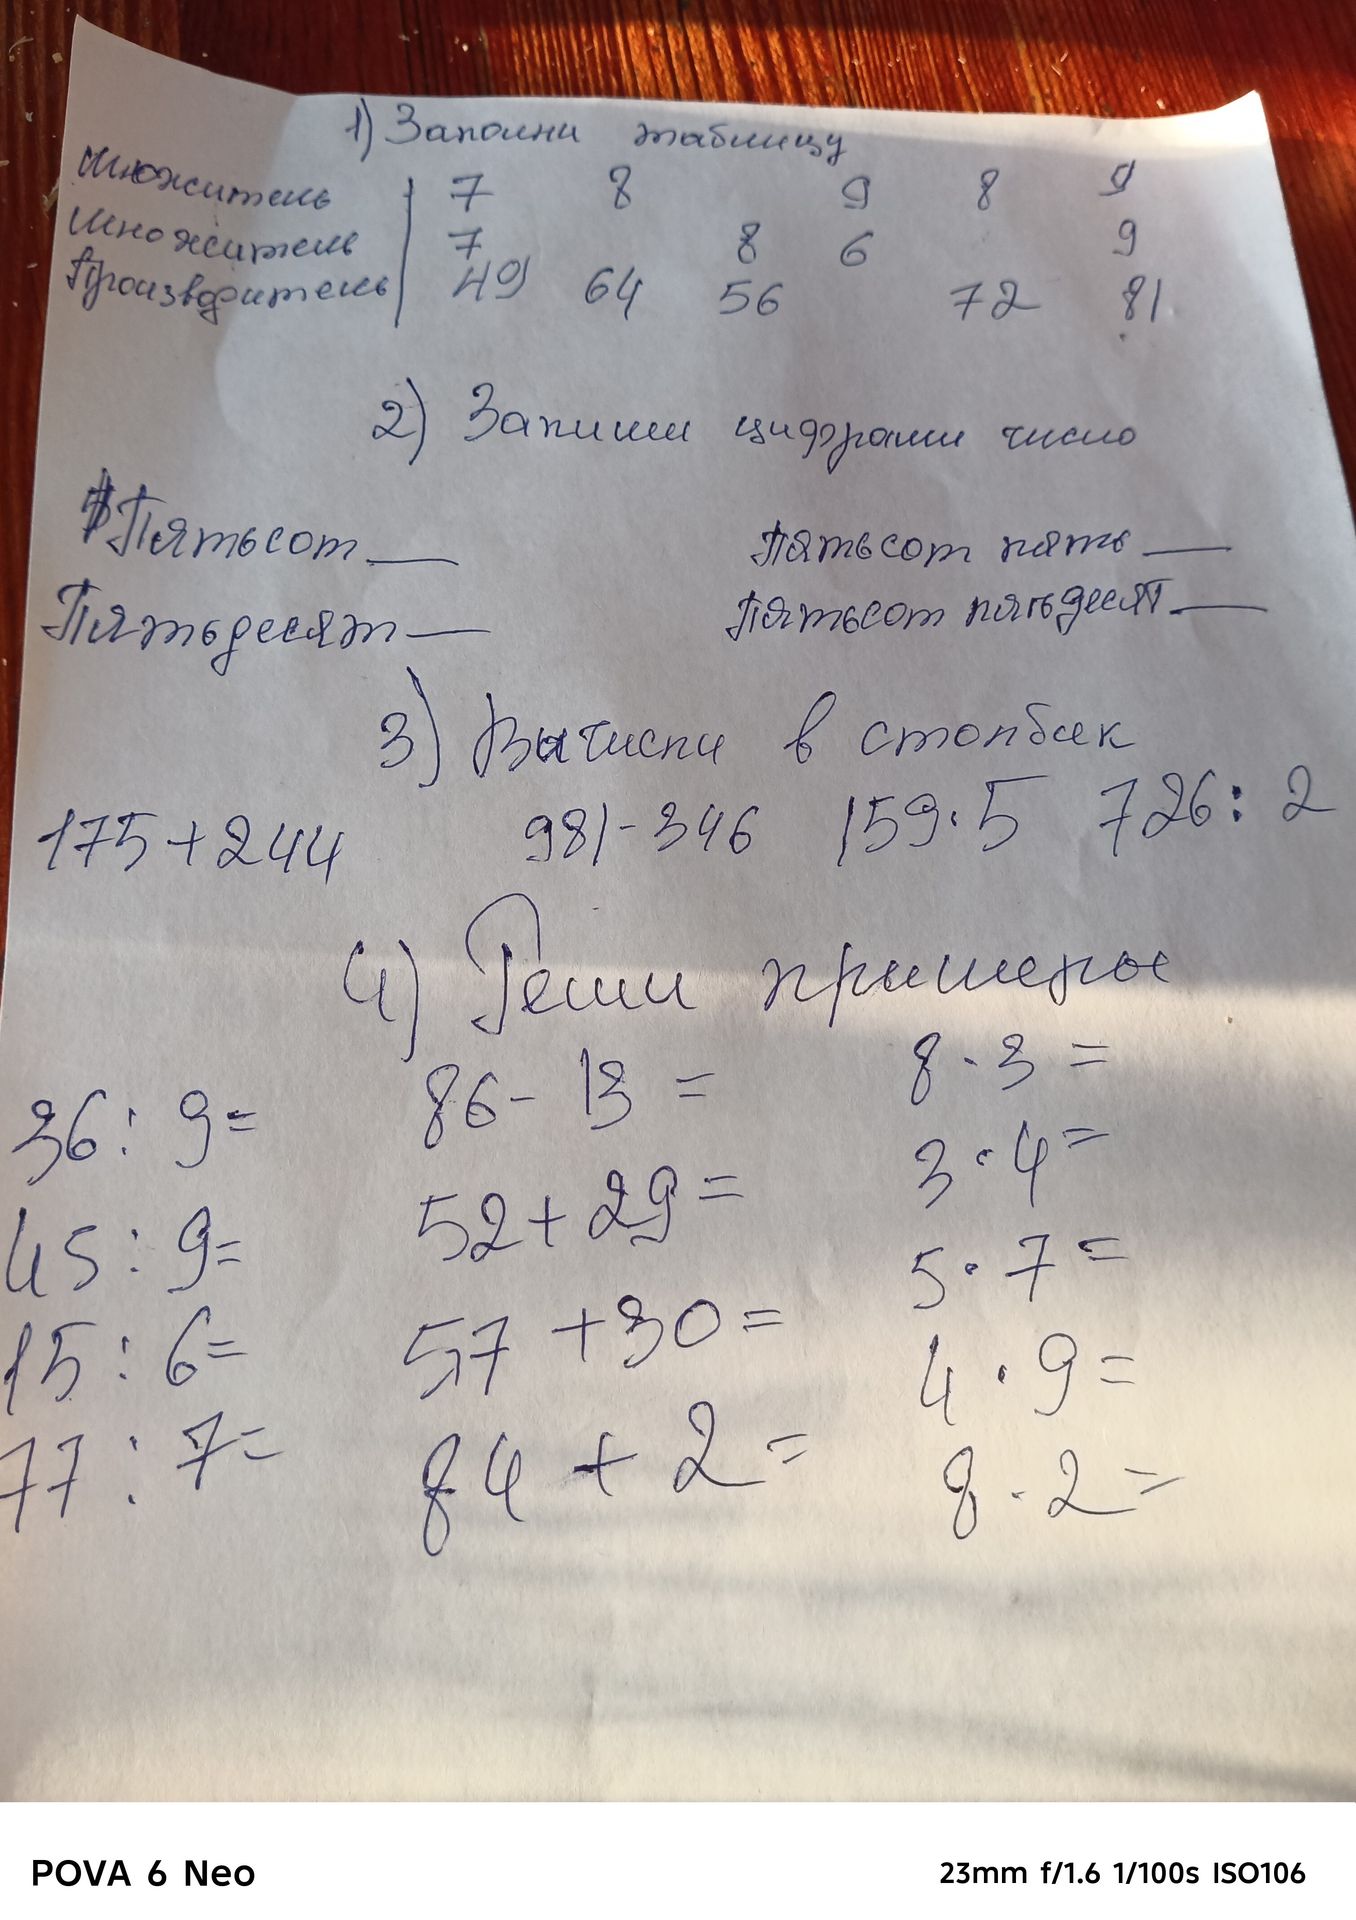 1) Заполни таблицу
Множитель | 7 8 9 8 9
Множитель | 7 8 6 9
Производитель | 49 64 56 72 81
2) Запиши цифрами число
Пятьсот __ Пятьсот пять __
Пятьдесят __ Пятьсот пятьдесят __
3) Вычисли в столбик
175+244 981-346 159·5 726:2
4) Реши примеры
36:9= 86-13= 8·3=
45:9= 52+29= 3·4=
15:6= 57+30= 5·7=
77:7= 84+2= 4·9=
8·2=
POVA 6 Neo 23mm f/1.6 1/100s ISO106